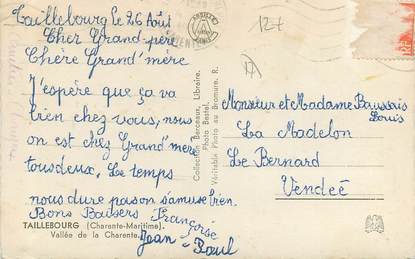 Taillebourg le 26 Août
Cher Grand-père
Chère Grand'mère
J'espère que ça va
bien chez vous, nous
on est chez Grand'mère
tous deux, le temps
nous dure pas on s'amuse bien.
Bons Baisers Françoise
Jean-Paul
TAILLEBOURG (Charente-Maritime).
Vallée de la Charente.
Collection Berceaux, Libraire.
Photo Bestel.
Véritable Photo au Bromure. R.
12+
Monsieur et Madame Baussais
Louis
La Madelon
Le Bernard
Vendée